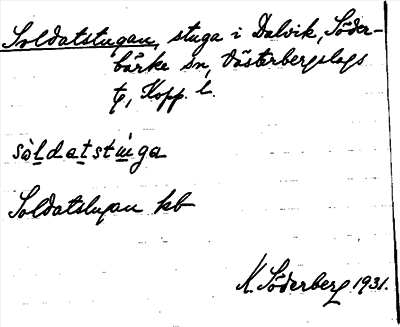 Soldatstugan, stuga i Dalvik, Söder-
bärke sn, Västerbergslags
tg, Kopp. l.
sòldatstúga
Soldatstugan kb
K. Söderberg 1931.